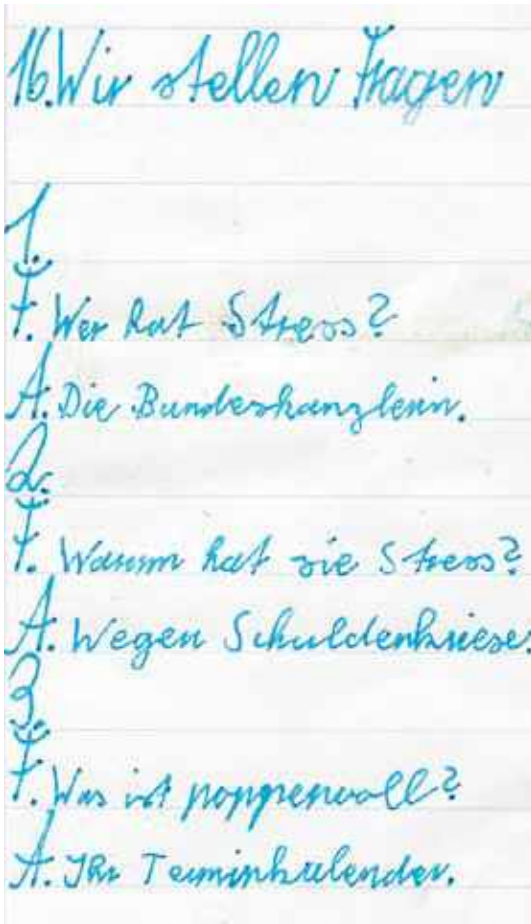 16. Wir stellen Fragen
1.
F. Wer hat Stress?
A. Die Bundeskanzlerin.
2.
F. Warum hat sie Stress?
A. Wegen Schuldenkriese.
3.
F. Was ist poppenvoll?
A. Ihr Terminkalender.